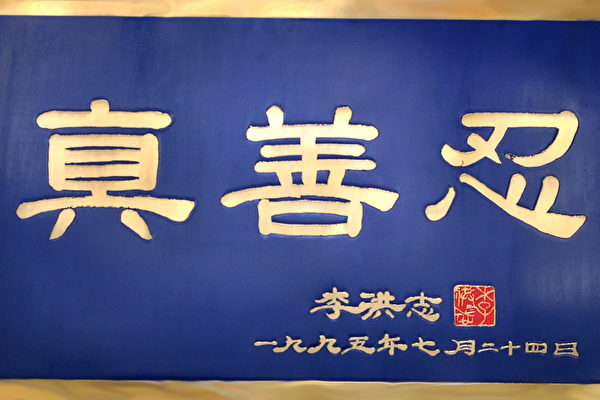 真善忍
李洪志
一九九五年七月二十四日